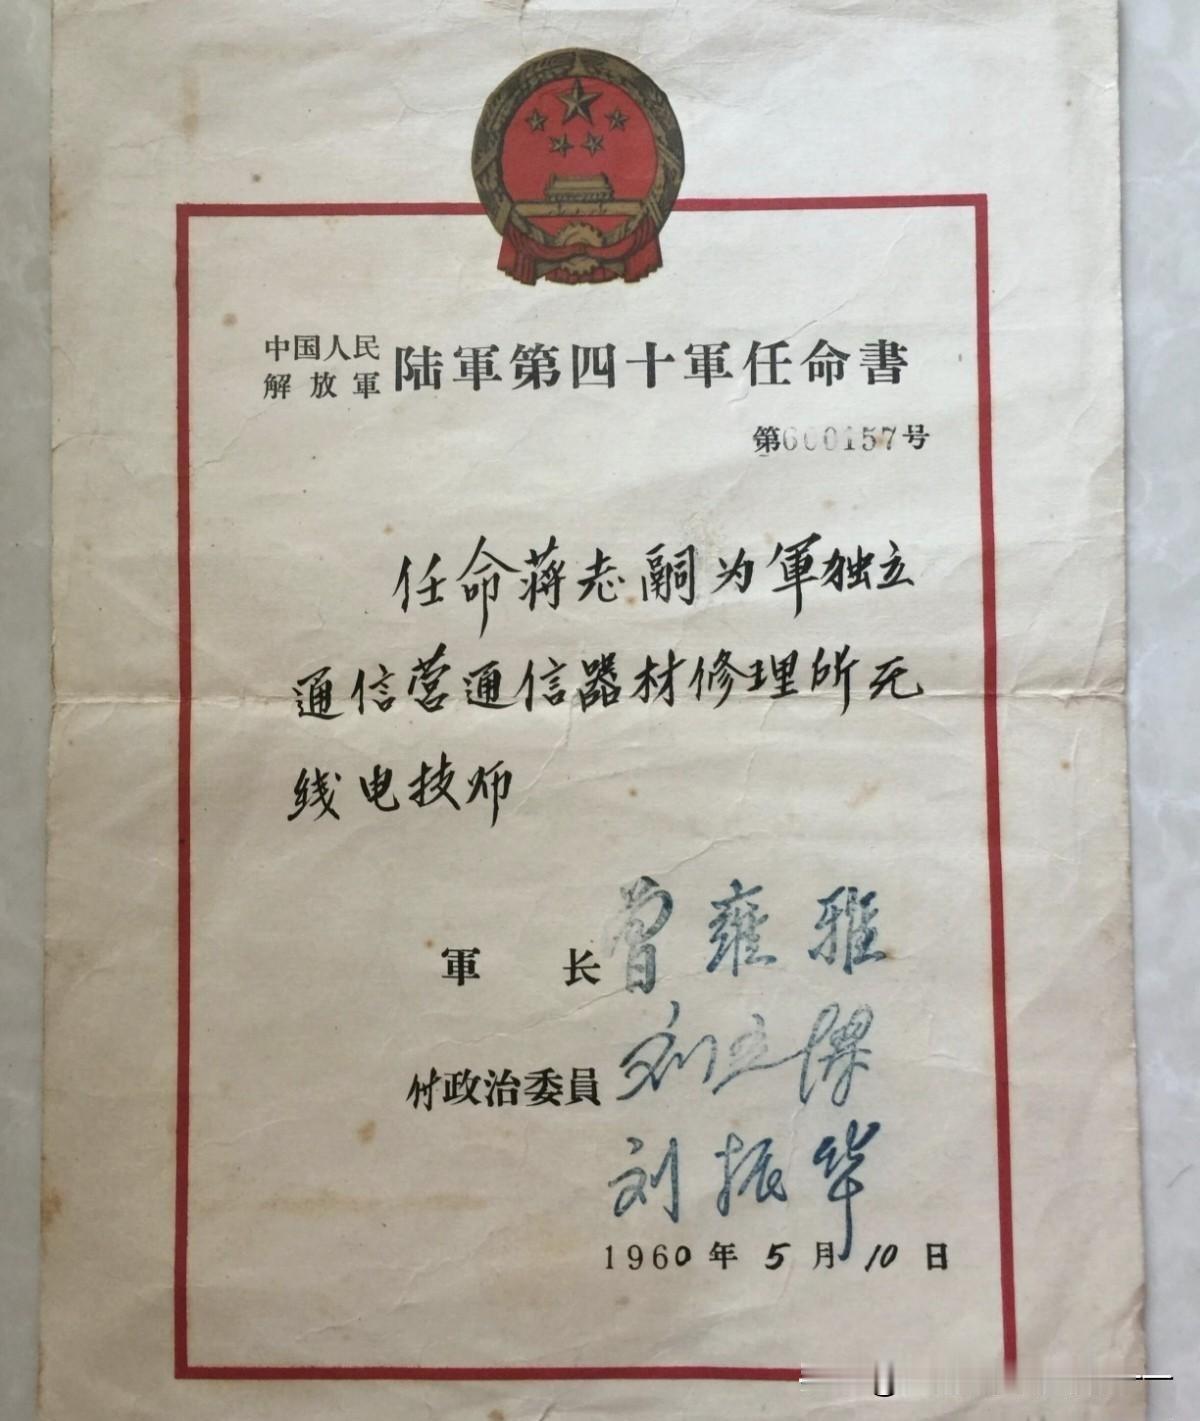 中国人民
解放軍
陆軍第四十軍任命書
第600157号
任命蒋志嗣为軍独立
通信营通信器材修理所无
线电技师
軍 长 曾雍雅
付政治委員
刘振华
1960年5月10日